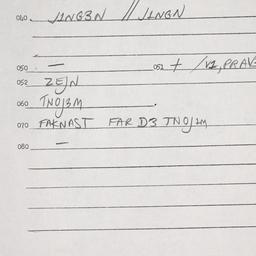 040. J1NG3N // J1NGN
050. — 051 + /V1, PRAV
052 ZEJN
060. TNOJ3M
070 FAKNAST FAR D3 TNOJ1M
080. —